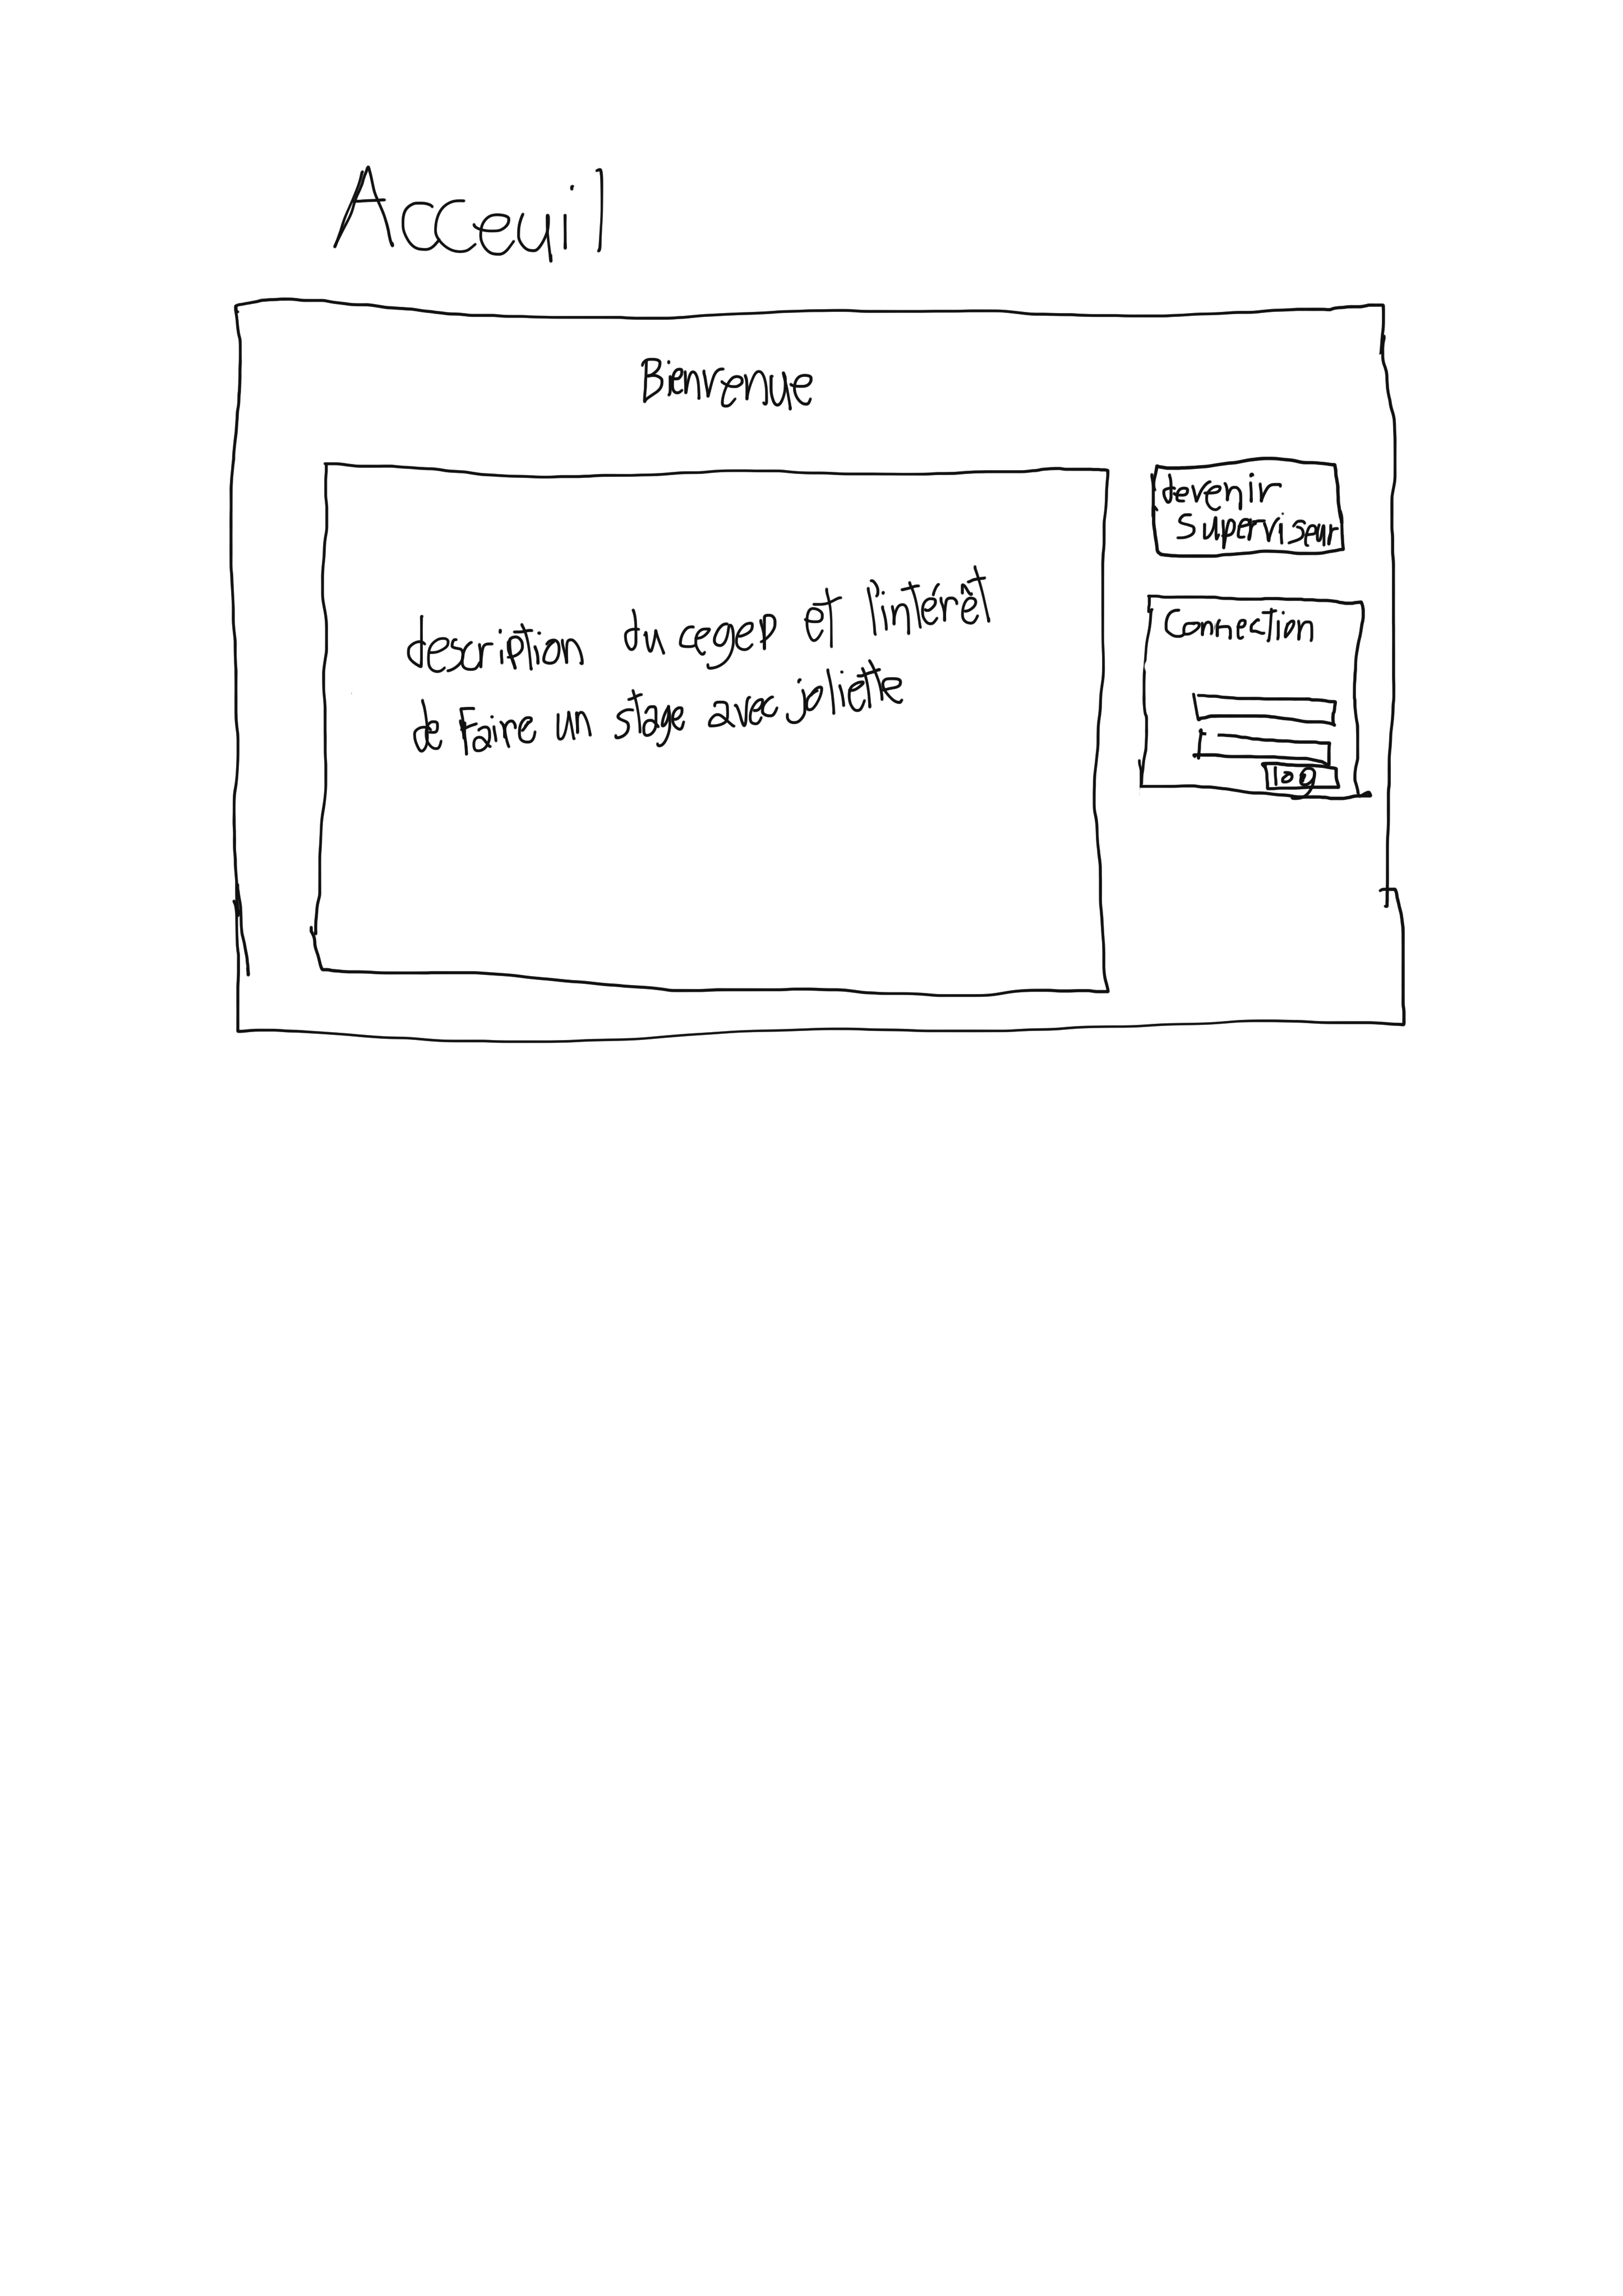 Acceuil
Bienvenue
description du cegep et l'intérêt
de faire un stage avec joliette
devenir
superviseur
Connection
log